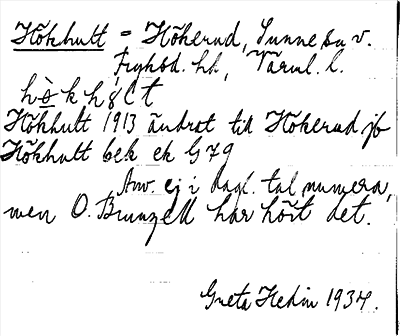 Hökhult = Hökerud, Sunne sn v.
Fryksd. hd, Värml. l.
Hökhult 1913 ändrat till Hökerud jb
Hökhult bek ek G79
Anv. ej i dagl. tal numera,
men O. Brunzell har hört det.
Greta Hedin 1934.